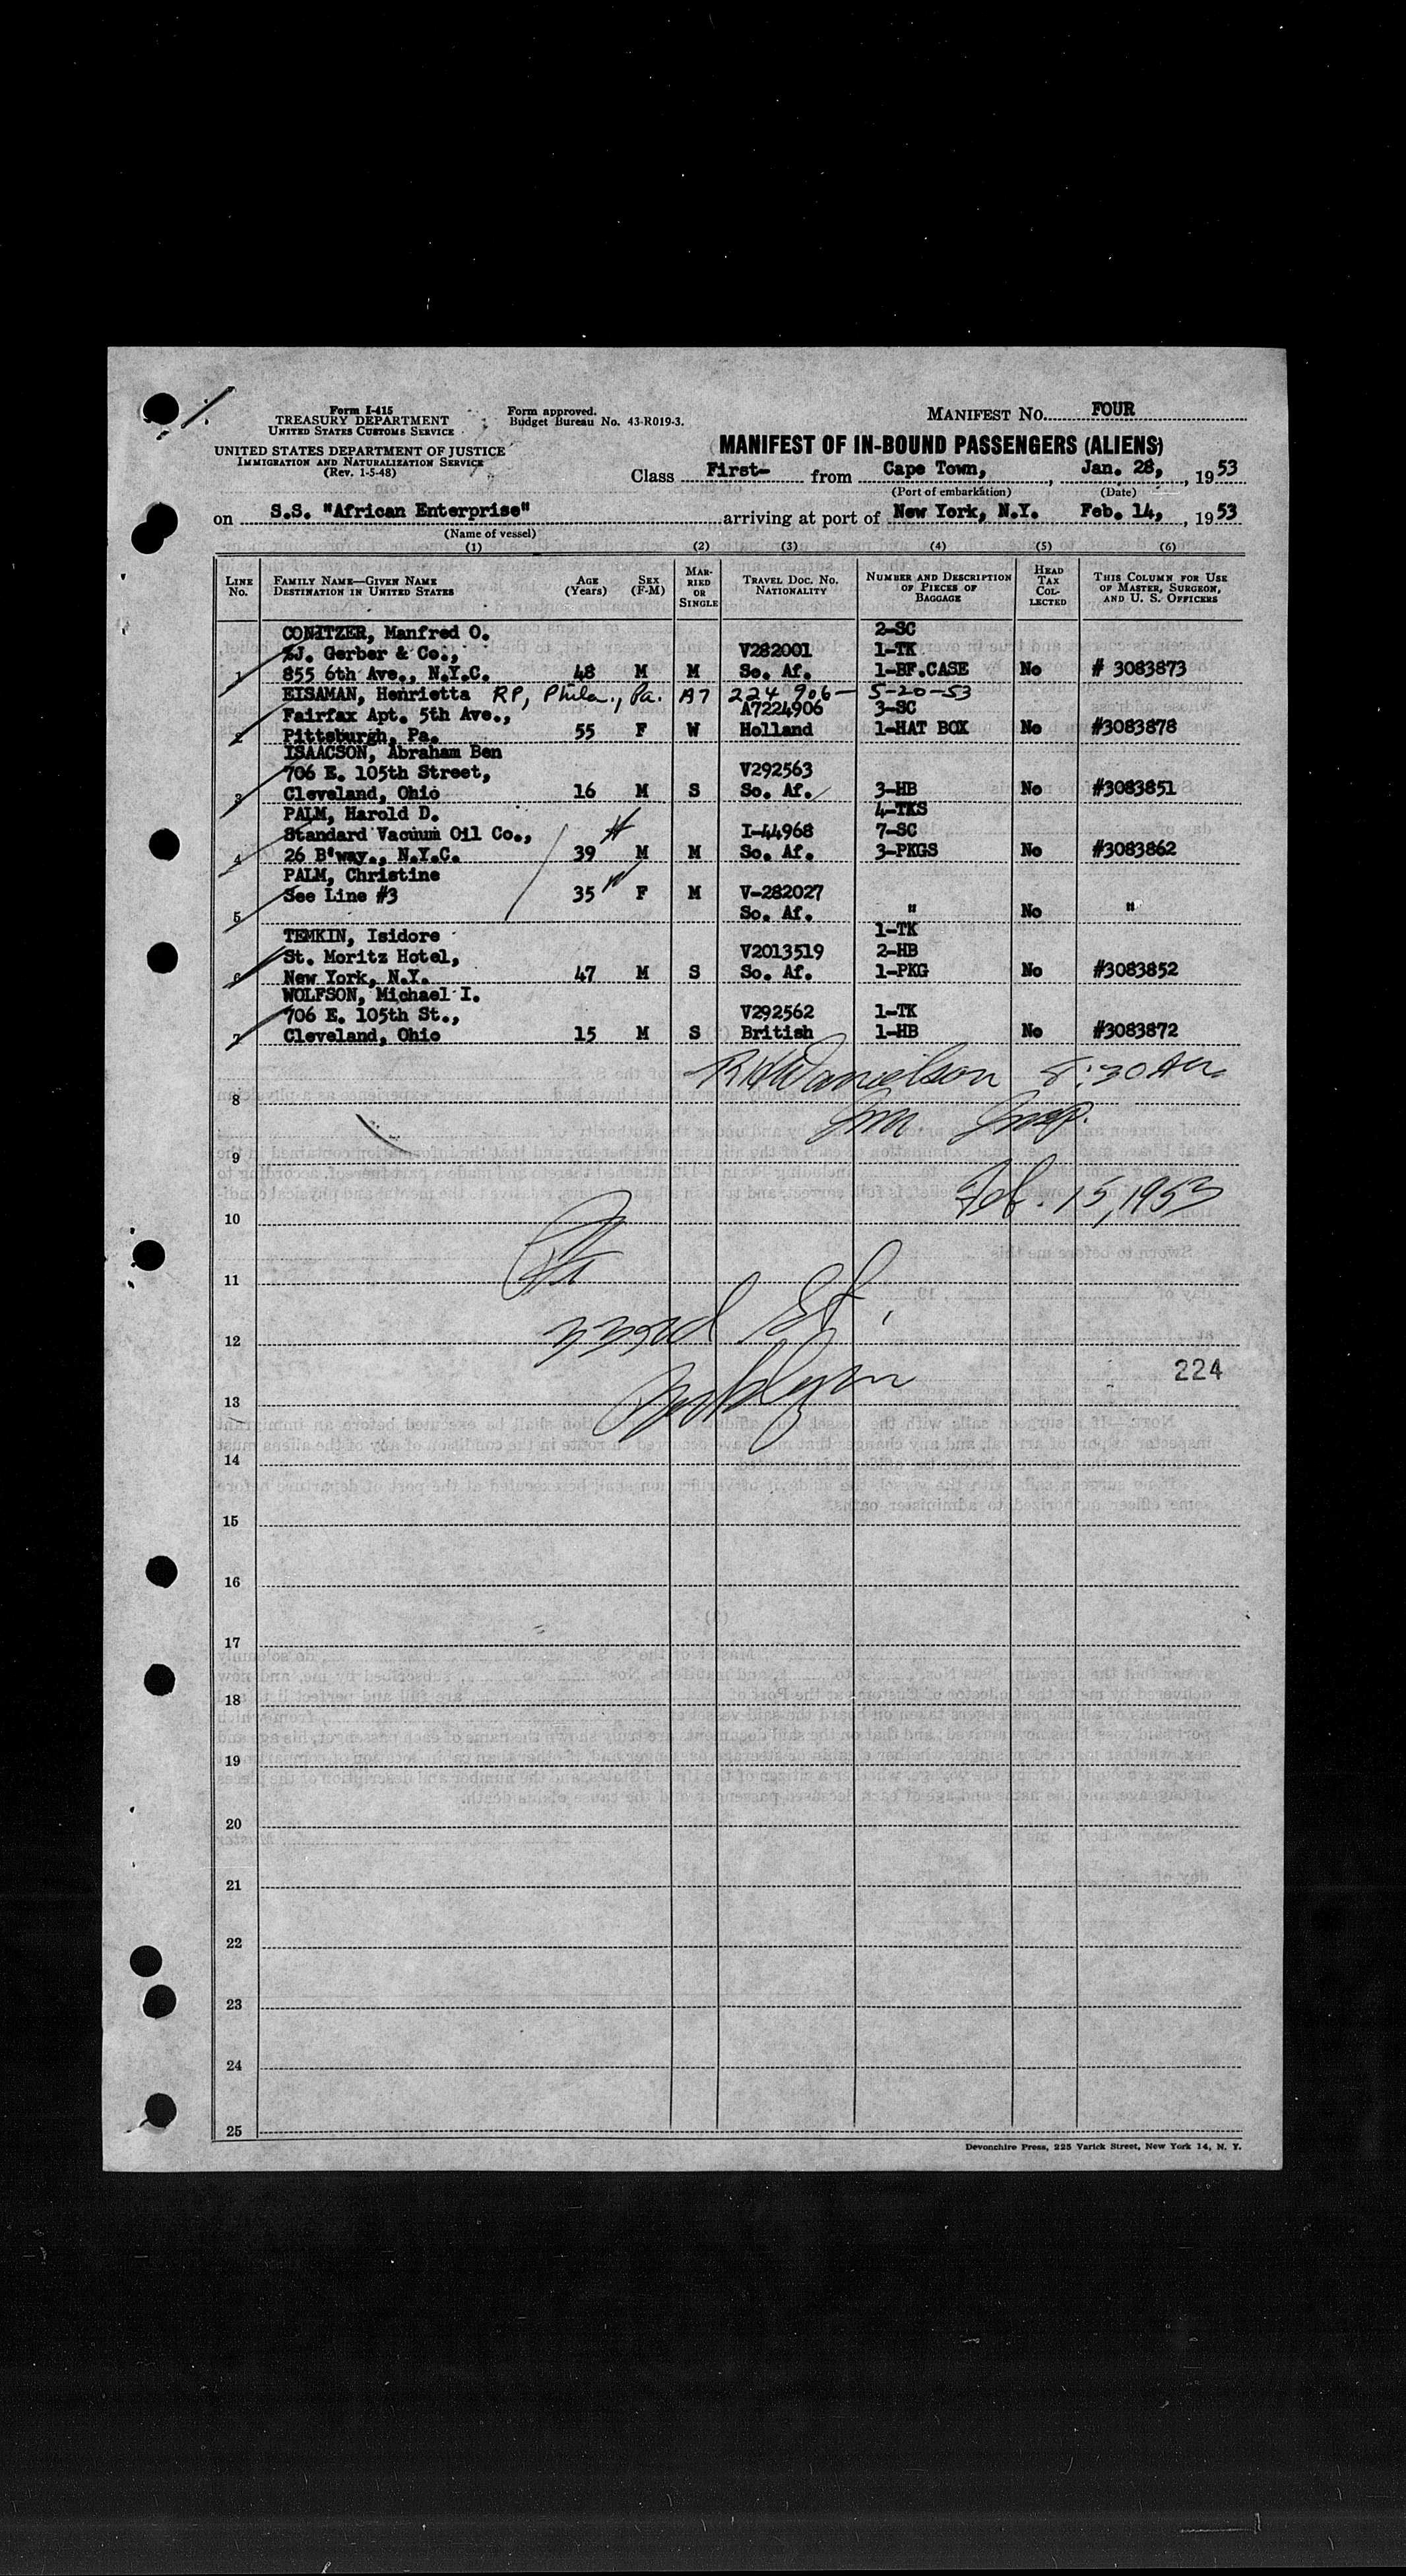 Form I-415
TREASURY DEPARTMENT
UNITED STATES CUSTOMS SERVICE
UNITED STATES DEPARTMENT OF JUSTICE
IMMIGRATION AND NATURALIZATION SERVICE
(Rev. 1-5-48)
Form approved.
Budget Bureau No. 43-R019-3.
MANIFEST NO. FOUR
MANIFEST OF IN-BOUND PASSENGERS (ALIENS)
Class First- from Cape Town, , Jan. 28, , 1953
(Port of embarkation) (Date)
on S.S. "African Enterprise" arriving at port of New York, N.Y. Feb. 14, , 1953
(Name of vessel)
(1) (2) (3) (4) (5) (6)
LINE No. FAMILY NAME—GIVEN NAME DESTINATION IN UNITED STATES AGE (Years) SEX (F-M) MARRIED OR SINGLE TRAVEL DOC. NO. NATIONALITY NUMBER AND DESCRIPTION OF PIECES OF BAGGAGE HEAD TAX COLLECTED THIS COLUMN FOR USE OF MASTER, SURGEON, AND U. S. OFFICERS
CONITZER, Manfred O. 2-SC
%J. Gerber & Co., V282001 1-TK
1 855 6th Ave., N.Y.C. 48 M M So. Af. 1-BF.CASE No # 3083873
EISAMAN, Henrietta RP, Phila., Pa. A7 224 906- 5-20-53
Fairfax Apt. 5th Ave., A7224906 3-SC
2 Pittsburgh, Pa. 55 F W Holland 1-HAT BOX No #3083878
ISAACSON, Abraham Ben
706 E. 105th Street, V292563
3 Cleveland, Ohio 16 M S So. Af. 3-HB No #3083851
PALM, Harold D. 4-TKS
Standard Vacuum Oil Co., I-44968 7-SC
4 26 B'way., N.Y.C. 39 M M So. Af. 3-PKGS No #3083862
PALM, Christine
See Line #3 35 F M V-282027
5 So. Af. " No "
TEMKIN, Isidore 1-TK
St. Moritz Hotel, V2013519 2-HB
6 New York, N.Y. 47 M S So. Af. 1-PKG No #3083852
WOLFSON, Michael I.
706 E. 105th St., V292562 1-TK
7 Cleveland, Ohio 15 M S British 1-HB No #3083872
Danielson 8:30 AM
8
Imm Insp.
9
Feb. 15, 1953
10
11
33rd St.
12
224
Brooklyn
13
14
15
16
17
18
19
20
21
22
23
24
25
Devonchire Press, 225 Varick Street, New York 14, N. Y.